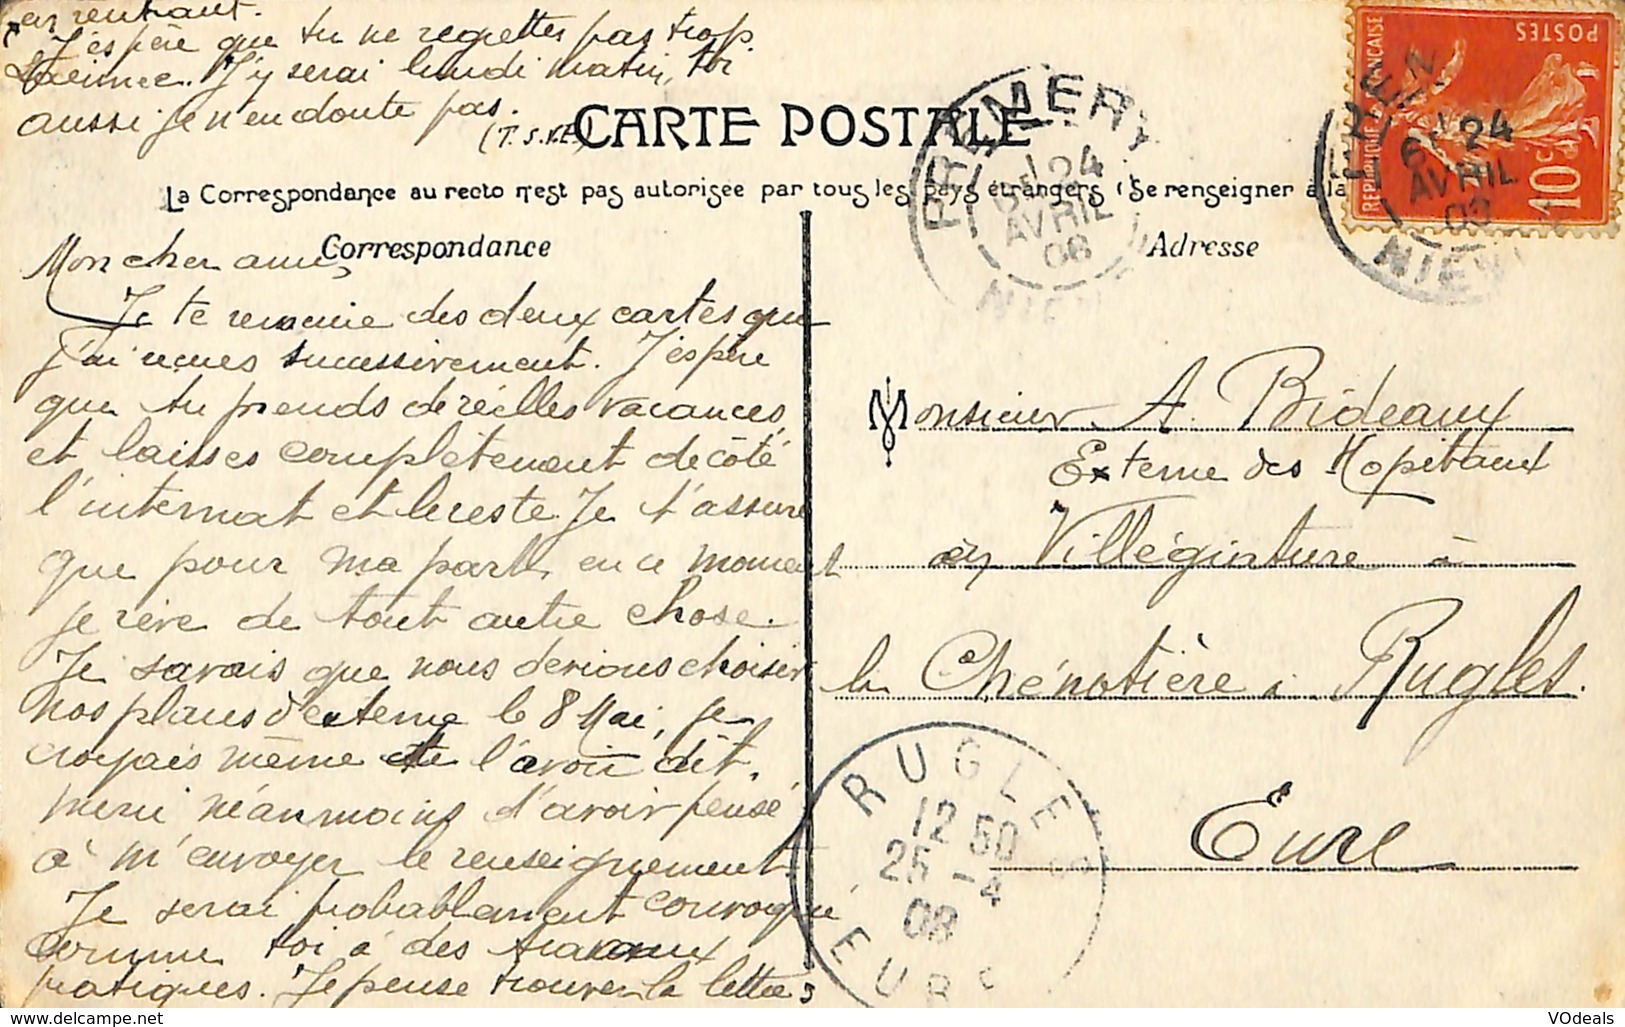 en rentrant.
J'espère que tu ne regrettes pas trop
Laennec. J'y serai lundi matin, toi
aussi je n'en doute pas.
(T.S.V.P)
CARTE POSTALE
La Correspondance au recto n'est pas autorisée par tous les pays étrangers (Se renseigner à la
Correspondance
Adresse
Mon cher ami,
Je te remercie des deux cartes que
j'ai reçues successivement. J'espère
que tu prends de réelles vacances,
et laisses complètement de côté
l'internat et le reste. Je t'assure
que pour ma part, en ce moment
je rêve de tout autre chose.
Je savais que nous devions choisir
nos places d'externe le 8 Mai, je
croyais même te l'avoir dit.
merci néanmoins d'avoir pensé
à m'envoyer le renseignement.
Je serai probablement convoqué
comme toi à des travaux
pratiques. Je pense trouver la lettre
Monsieur A. Bideaux
Externe des Hopitaux
en Villégiature à
la Chénotière à Rugles.
Eure
PREMERY
24
AVRIL
08
NIEVRE
POSTES
REPUBLIQUE FRANÇAISE
10c
24
AVRIL
RUGLES
12 50
25 -4
08
EURE
VOdeals
www.delcampe.net